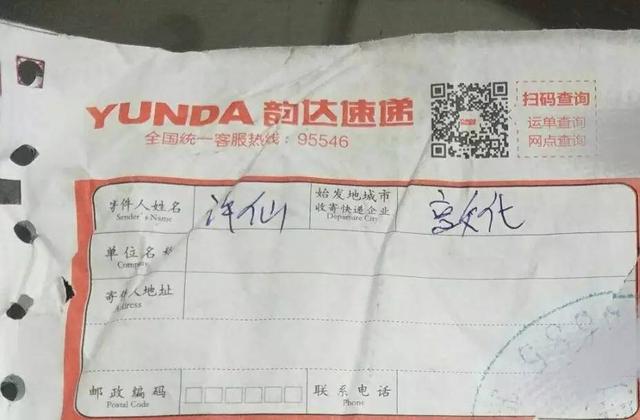 YUNDA 韵达速递
全国统一客服热线：95546
扫码查询
运单查询
网点查询
寄件人姓名 许仙 始发地城市
Sender's Name 收寄快递企业
Departure City
单位名称
Company
寄件人地址
Address
邮政编码 联系电话
Postal Code Phone